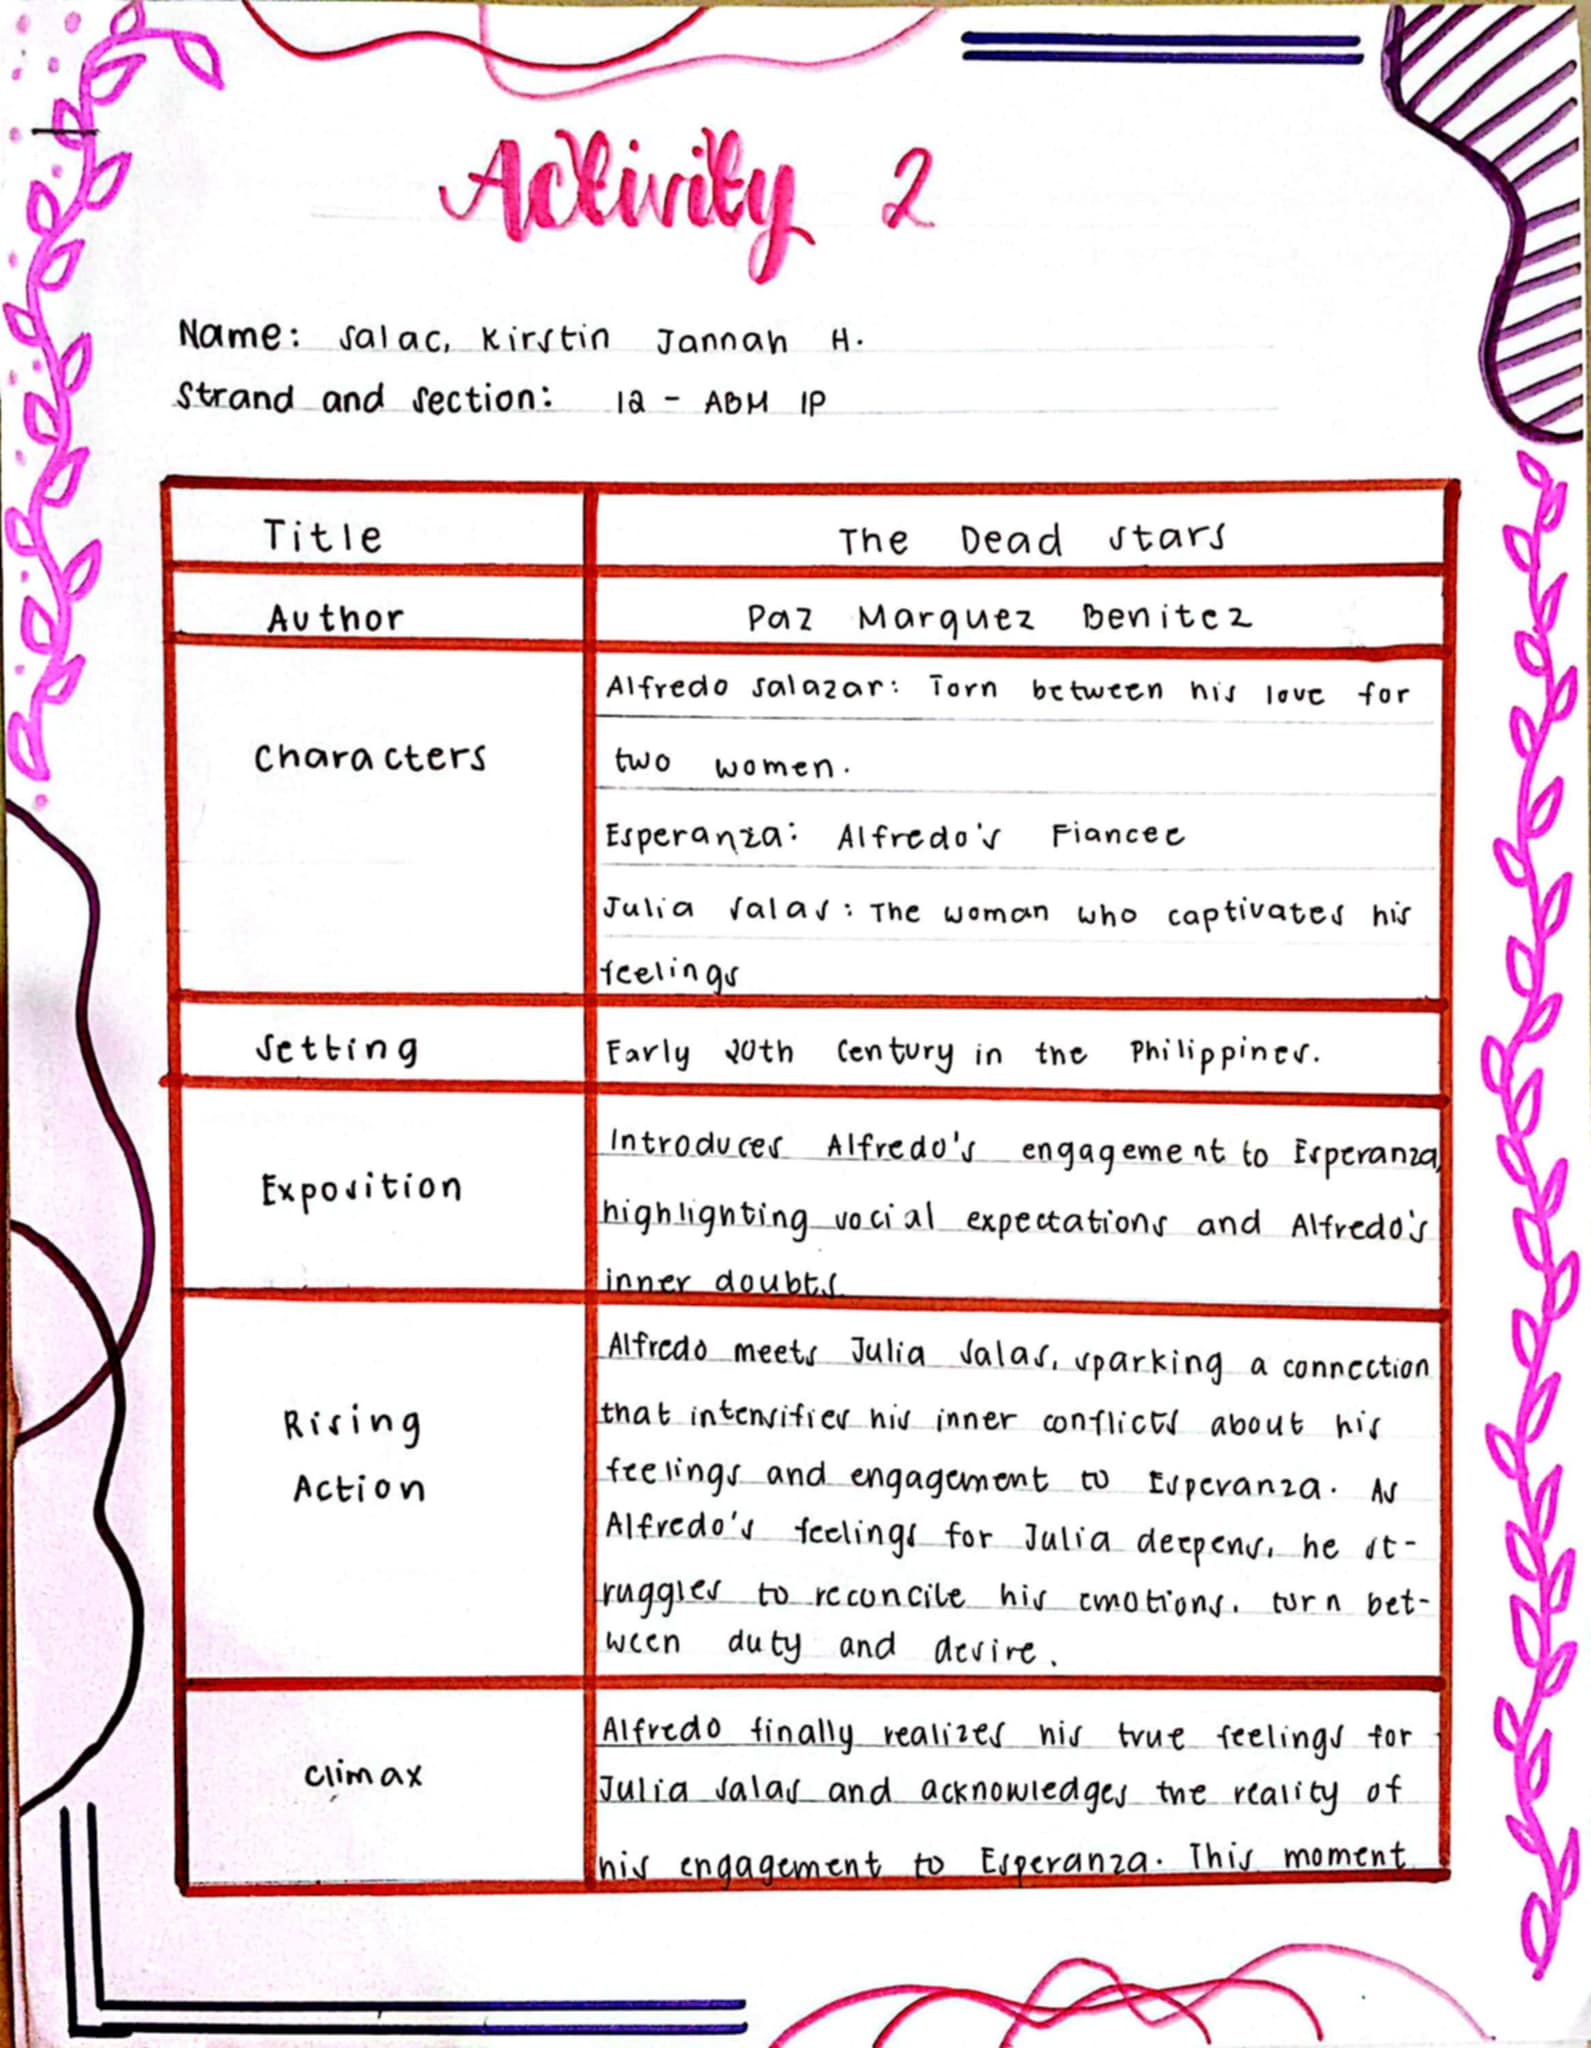 Activity 2
Name: Salac, Kirstin Jannah H.
Strand and Section: 12 - ABM 1P
Title
The Dead Stars
Author
Paz Marquez Benitez
Characters
Alfredo Salazar: Torn between his love for
two women.
Esperanza: Alfredo's Fiancee
Julia Salas: The woman who captivates his
feelings
Setting
Early 20th Century in the Philippines.
Exposition
Introduces Alfredo's engagement to Esperanza,
highlighting social expectations and Alfredo's
inner doubts
Rising
Action
Alfredo meets Julia Salas, sparking a connection
that intensifies his inner conflicts about his
feelings and engagement to Esperanza. As
Alfredo's feelings for Julia deepens, he st-
ruggles to reconcile his emotions. turn bet-
ween duty and desire.
Climax
Alfredo finally realizes his true feelings for
Julia Salas and acknowledges the reality of
his engagement to Esperanza. This moment